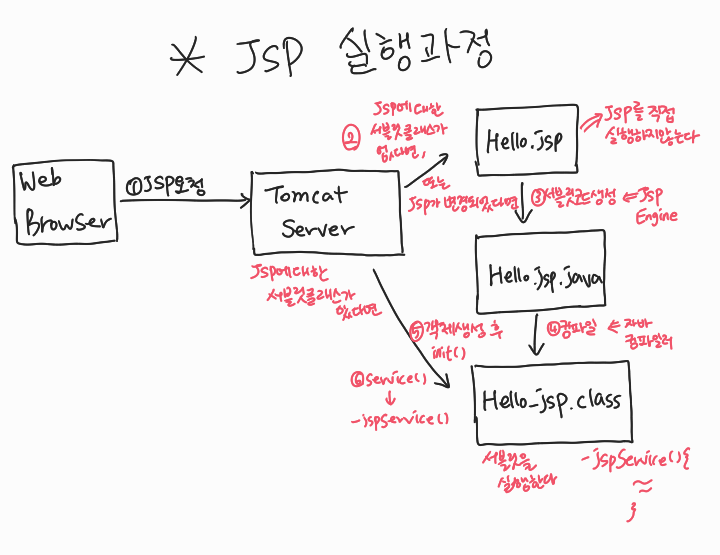 * JSP 실행과정
Web
Browser
①JSP요청
Tomcat
Server
② JSP에대한
서블릿클래스가
없다면,
또는
JSP가 변경되었다면
Hello.jsp
JSP를 직접
실행하지않는다
③서블릿코드생성 ⇐ JSP
Engine
Hello.jsp.java
④컴파일 ⇐ 자바
컴파일러
JSP에대한
서블릿클래스가
있다면
⑤객체생성 후
init()
⑥service()
↓
-jspService()
Hello_jsp.class
서블릿을
실행한다
-jspService(){
≈
}